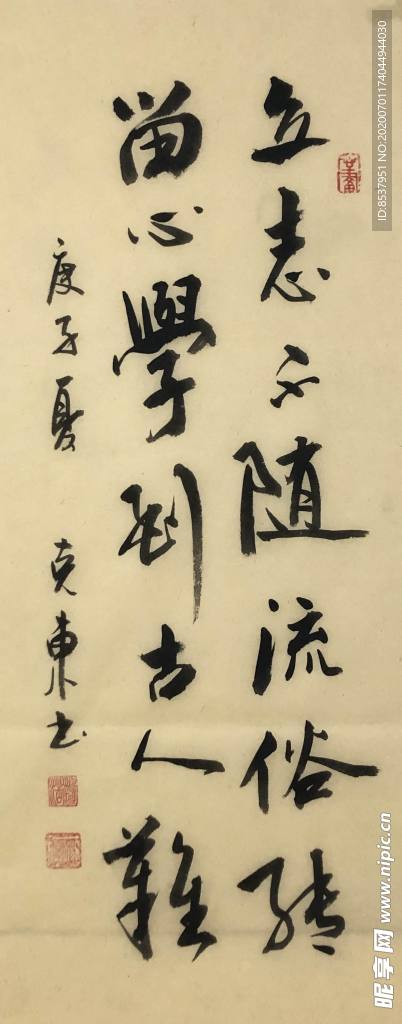 立志不随流俗转
留心學到古人難
庚子夏 克東书
ID:8537951 NO:20200701174044944030
昵享网 www.nipic.cn